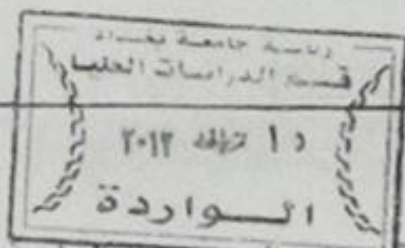 رئاسة جامعة بغداد
قسم الدراسات العليا
٢٠١٢
الـواردة